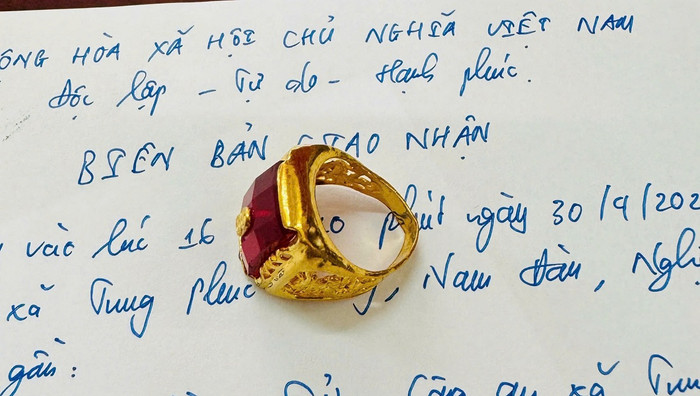 ỘNG HÒA XÃ HỘI CHỦ NGHĨA VIỆT NAM
Độc lập - Tự do - Hạnh phúc.
BIÊN BẢN GIAO NHẬN
vào lúc 16 phút ngày 30/9/202
xã Trung phúc Nam Đàn, Nghệ
gồm:
Công an xã Trun